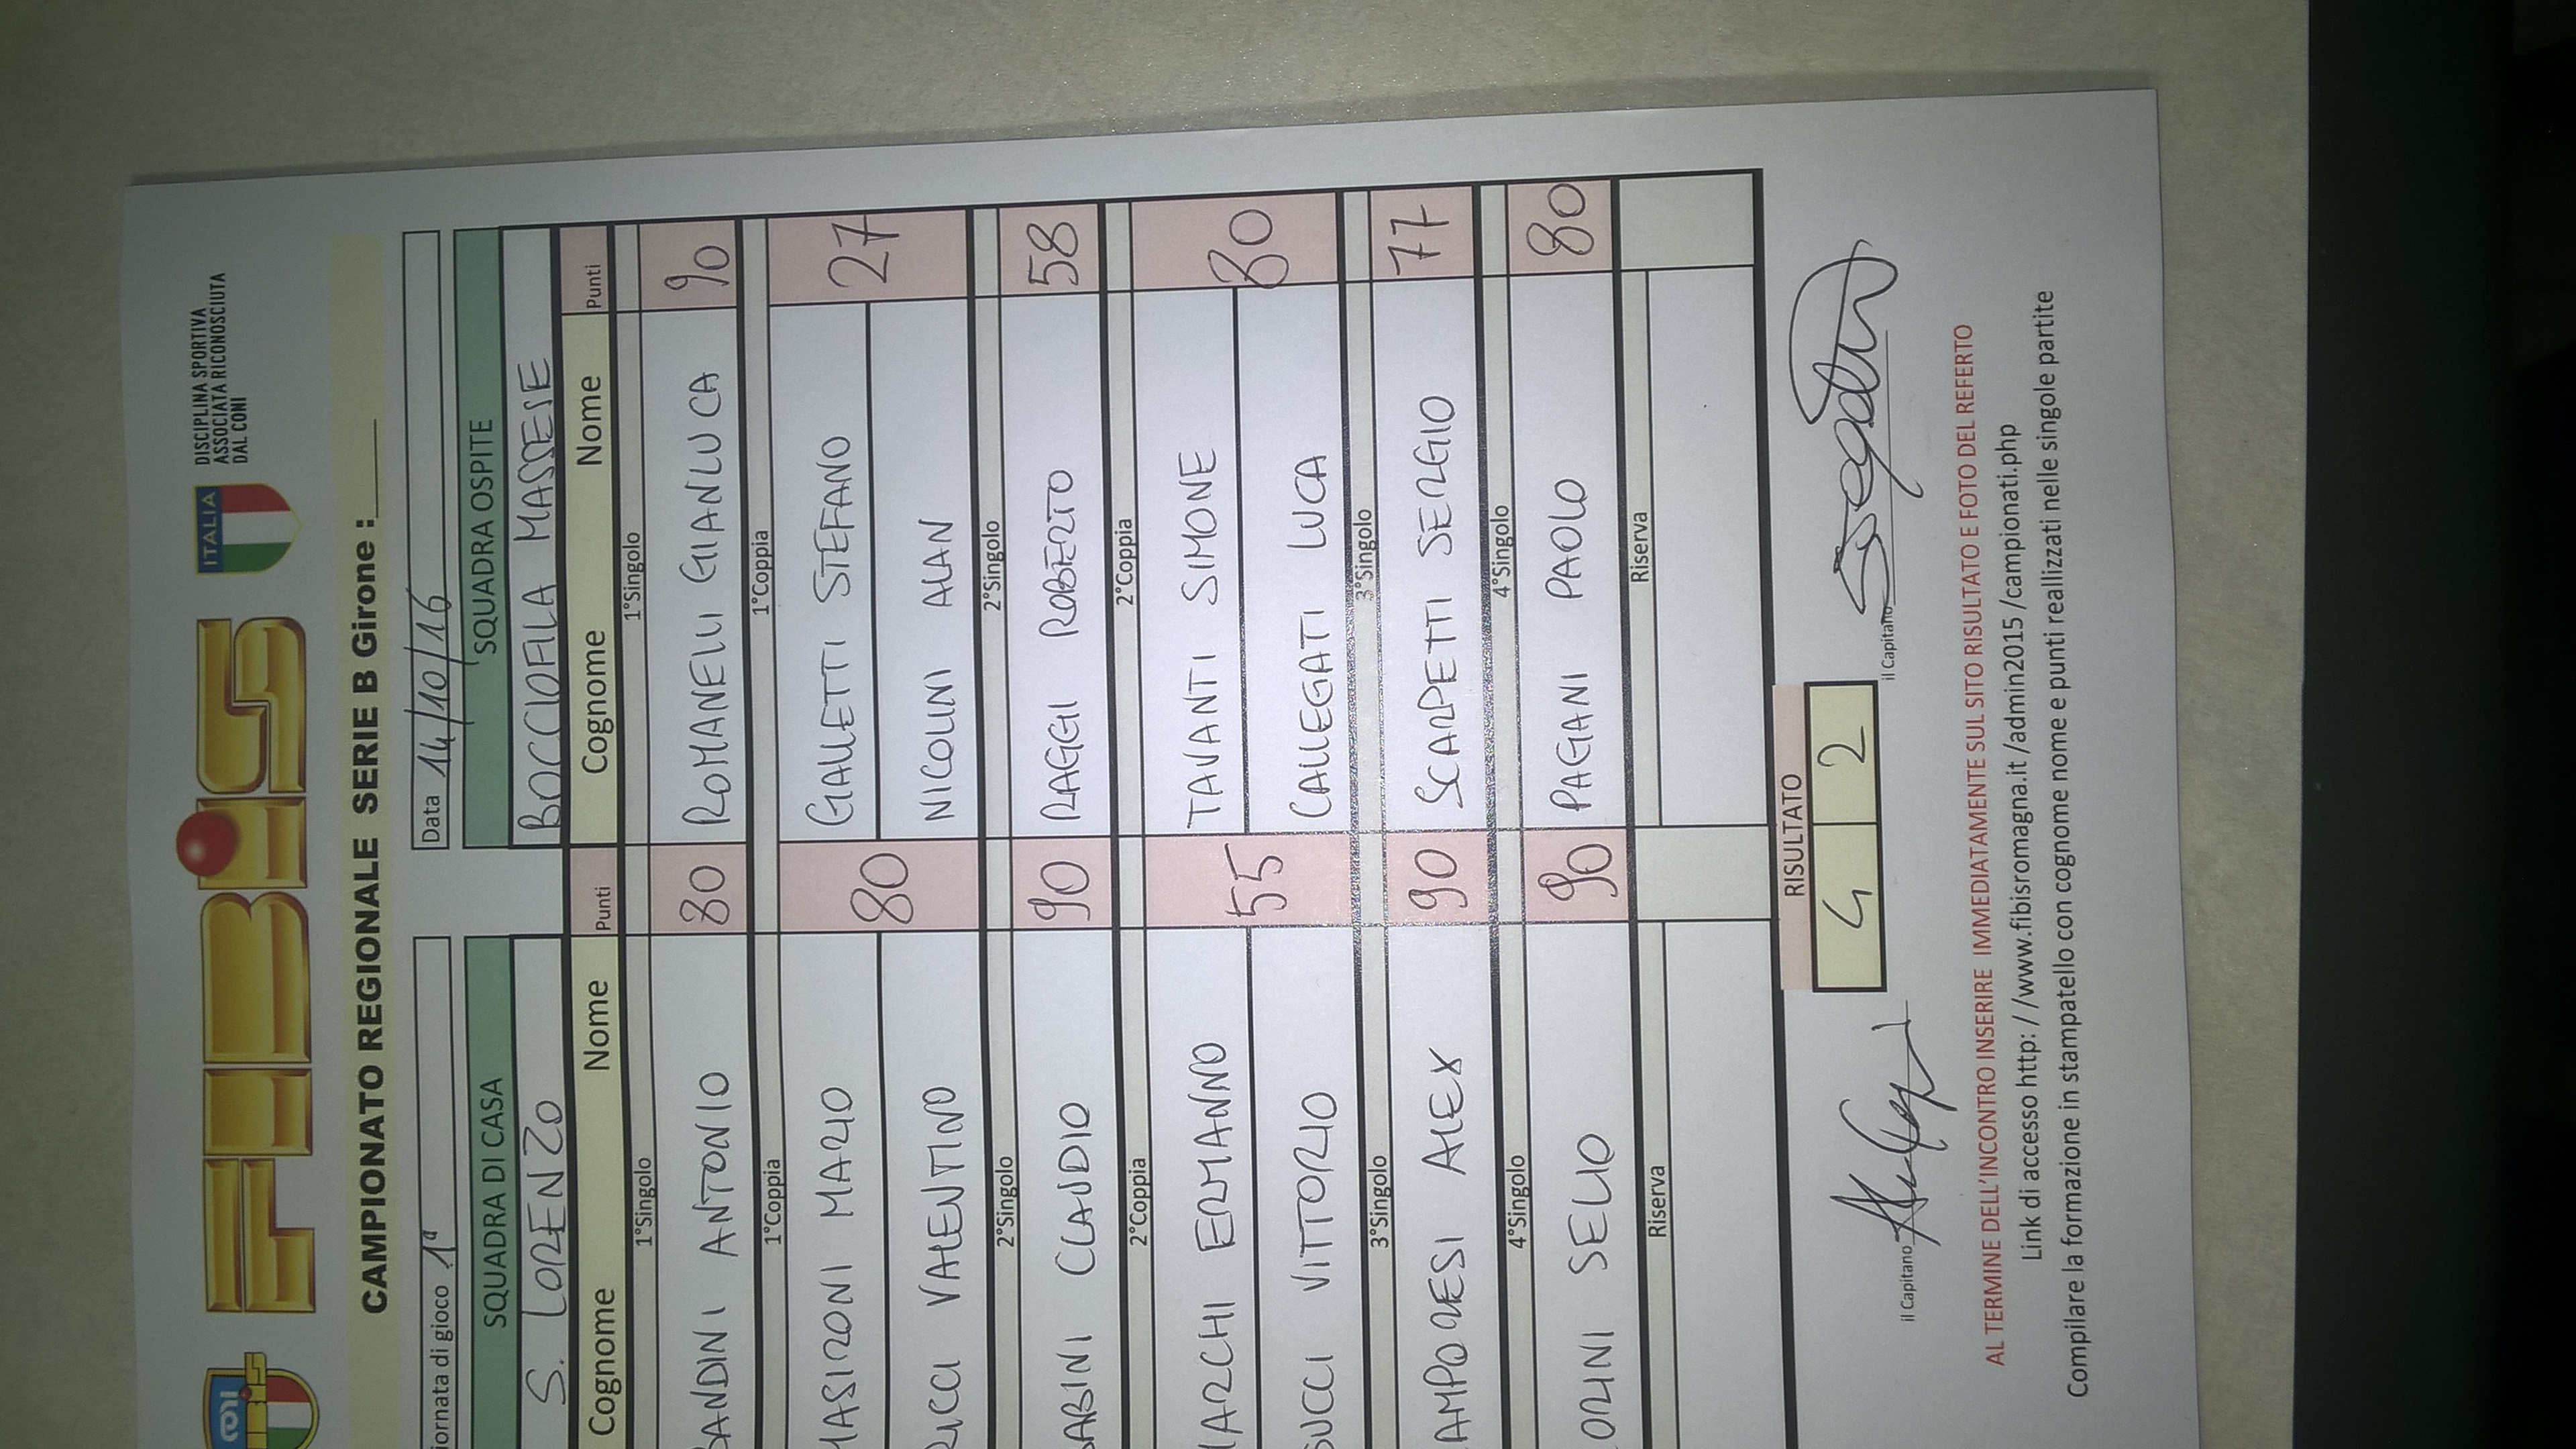 FIBiS
ITALIA
DISCIPLINA SPORTIVA
ASSOCIATA RICONOSCIUTA
DAL CONI
CAMPIONATO REGIONALE SERIE B Girone :
iornata di gioco 1ª Data 14/10/16
SQUADRA DI CASA SQUADRA OSPITE
S. LORENZO BOCCIOFILA MASSESE
Cognome Nome Punti Cognome Nome Punti
1°Singolo 1°Singolo
ANDINI ANTONIO 80 ROMANELLI GIANLUCA 90
1°Coppia 1°Coppia
MASIRONI MARIO 80 GIALLETTI STEFANO 27
RICCI VALENTINO NICOLINI ALAN
2°Singolo 2°Singolo
ABINI CLAUDIO 90 RAGGI ROBERTO 58
2°Coppia 2°Coppia
ARCHI ERMANNO 55 TAVANTI SIMONE 80
UCCI VITTORIO CALLEGATI LUCA
3°Singolo 3°Singolo
AMPORESI ALEX 90 SCARPETTI SERGIO 77
4°Singolo 4°Singolo
ORINI SELIO 90 PAGANI PAOLO 80
Riserva Riserva
RISULTATO
4 2
il Capitano il Capitano
AL TERMINE DELL'INCONTRO INSERIRE IMMEDIATAMENTE SUL SITO RISULTATO E FOTO DEL REFERTO
Link di accesso http: / /www.fibisromagna.it /admin2015 /campionati.php
Compilare la formazione in stampatello con cognome nome e punti reallizzati nelle singole partite